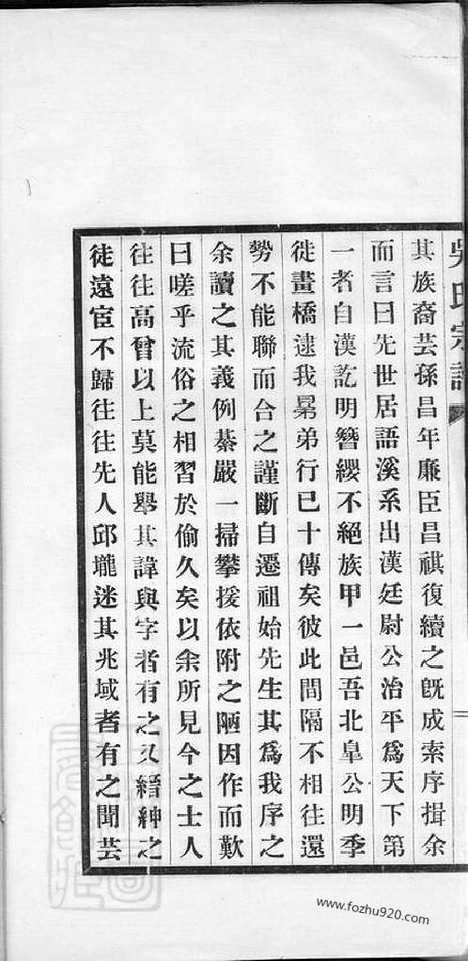 吳氏宗譜
其族裔芸孫昌年廉臣昌祺復續之旣成索序揖余
而言曰先世居語溪系出漢廷尉公治平爲天下第
一者自漢訖明簪纓不絕族甲一邑吾北臯公明季
徙晝橋逮我昴弟行已十傳矣彼此間隔不相往還
勢不能聯而合之謹斷自遷祖始先生其爲我序之
余讀之其義例綦嚴一掃攀援依附之陋因作而歎
曰嗟乎流俗之相習於偷久矣以余所見今之士人
往往高曾以上莫能舉其諱與字者有之又縉紳之
徒遠宦不歸往往先人邱壠迷其兆域者有之聞芸
www.fozhu920.com